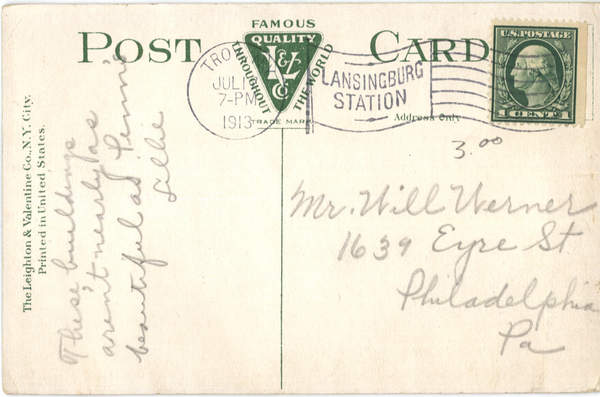 POST CARD
FAMOUS
QUALITY
THROUGHOUT THE WORLD
L&V
Co
TRADE MARK
TROY
JUL 1
7-PM
1913
LANSINGBURG
STATION
U.S. POSTAGE
1 CENT 1
Address Only
3.00
The Leighton & Valentine Co., N.Y. City.
Printed in United States.
These buildings
aren't nearly as
beautiful as Penn's
Lillie
Mr. Will Werner
1639 Eyre St.
Philadelphia
Pa